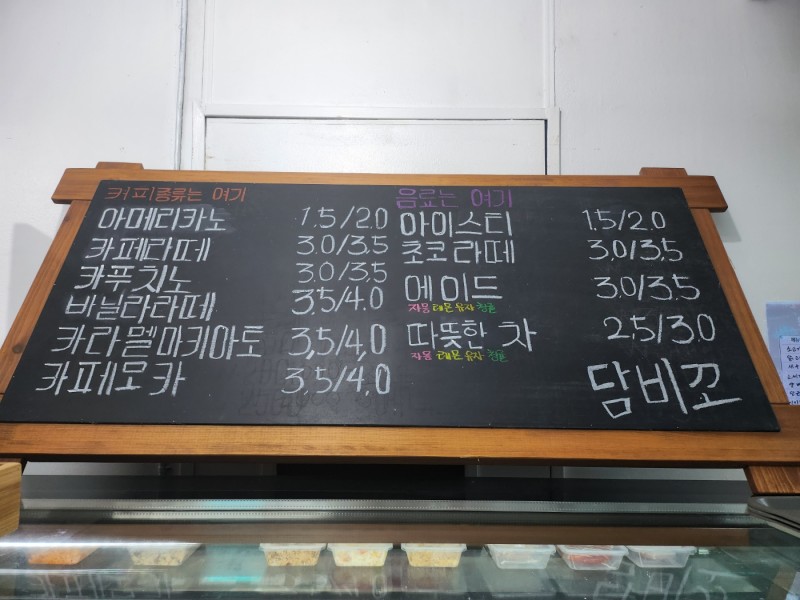 커피종류는 여기
아메리카노 1.5/2.0
카페라떼 3.0/3.5
카푸치노 3.0/3.5
바닐라라떼 3.5/4.0
카라멜마키아토 3.5/4.0
카페모카 3.5/4.0
음료는 여기
아이스티 1.5/2.0
초코라떼 3.0/3.5
에이드 3.0/3.5
자몽 레몬 유자 청귤
따뜻한 차 2.5/3.0
자몽 레몬 유자 청귤
담비꼬